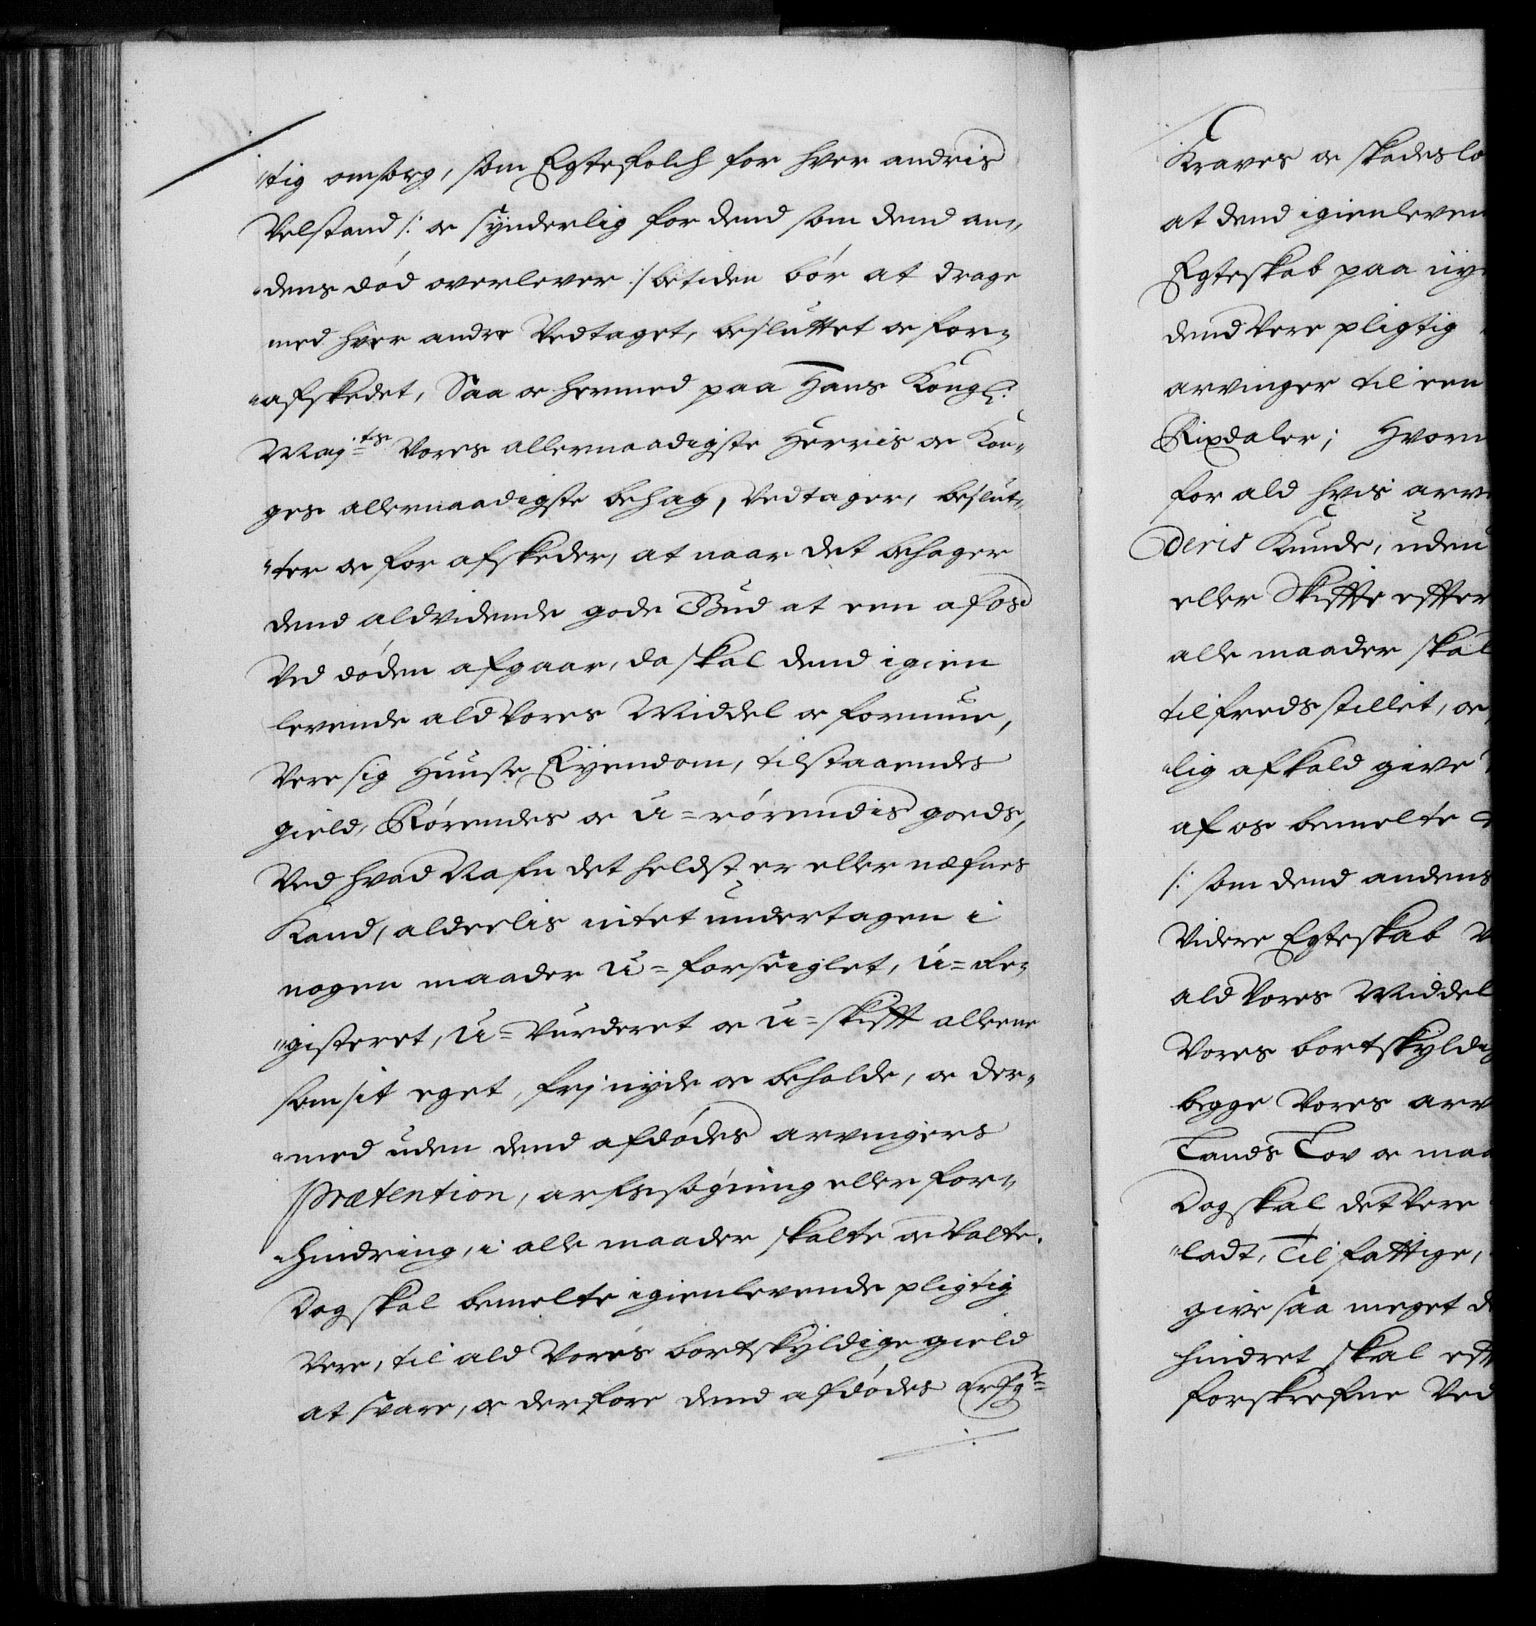 tig omsorg, som Egtefolch for hver andris
Velstand /: oc synderlig for dend som dend an„
„dens død overlever :/ betiden bør at drage
med hver andre Vedtaget, besluttet oc for„
„afskedet, Saa oc hermed paa Hans Kongl:
Majts Vores allernaadigste Herris oc Kon„
ges allernaadigste behag, Vedtager, beslut„
„ter oc for afskeder, at naar det behager
dend aldvidende gode Gud at een af os
Ved døden afgaar, da skal dend igien
levende ald Vores Middel oc formue,
Vere sig Huuse, Eyendom, tilstaaendes
gield, Rørendes oc U=rørendis goeds,
Ved hvad Nafn det heldst er eller næfnes
Kand, alderlis intet undertagen i
nogen maader U=forseiglet, U=Re„
„gisteret, U=Vurderet oc U=skifft alleene
som sit eget, frj nyde oc beholde, oc der„
„med uden dend afdødes arvingers
Prætention, arfsøgning eller for„
„hindring, i alle maader skalte oc Valte.
Dog skal bemelte igienlevende pligtig
Vere, til ald Vores bortskyldige gield
at svare, oc derfore dend afdødes arfgr
Kraves oc skadeslo
at dend igienleven
Egteskab paa nye
dend Vere pligtig
arvinger til een
Rixdaler; Hvorn
for ald hvis arv
deris Kunde, uden
eller Skiffte effter
alle maader skal
tilfredsstillet, oc
lig afkald give
af os bemelte
/: som dend andens
Videre Egteskab V
ald Vores Middel
Vores bortskyldig
begge Vores arv
Lands Lov oc maa
Dog skal det Vere
„ladt, Til fattige,
give saa meget d
hindret skal eff
forskrefne Ved